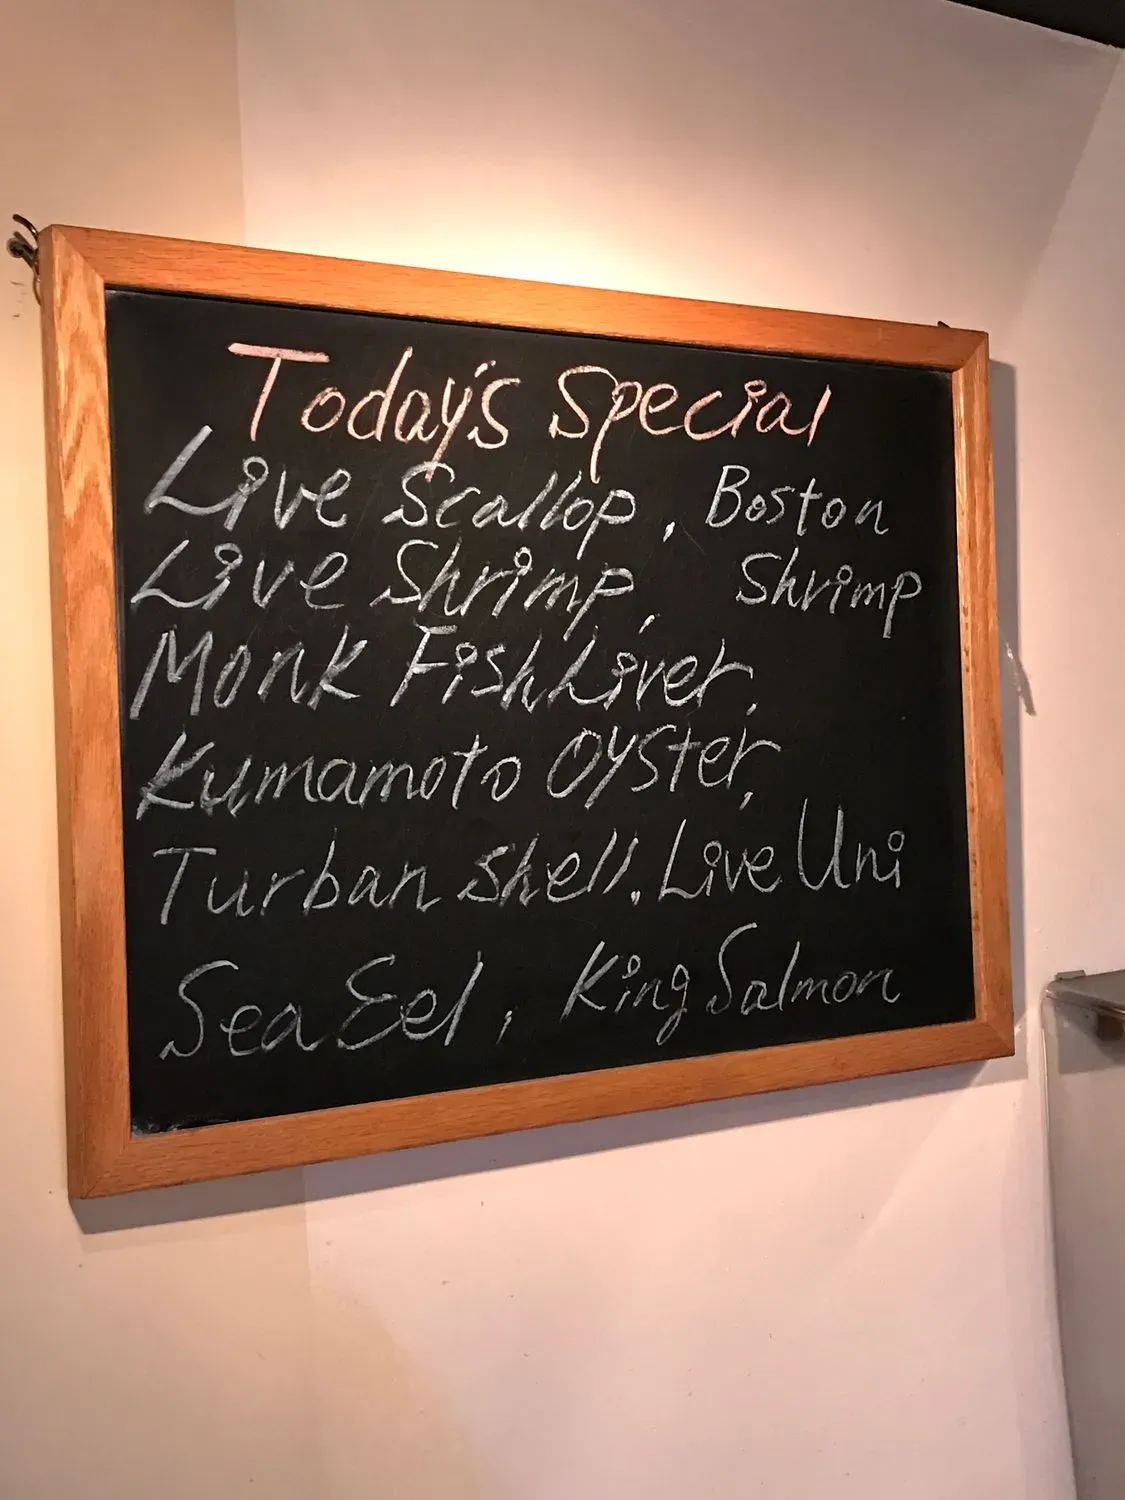 Today's Special
Live Scallop, Boston
Live Shrimp, Shrimp
Monk Fish Liver,
Kumamoto Oyster,
Turban Shell, Live Uni
Sea Eel, King Salmon